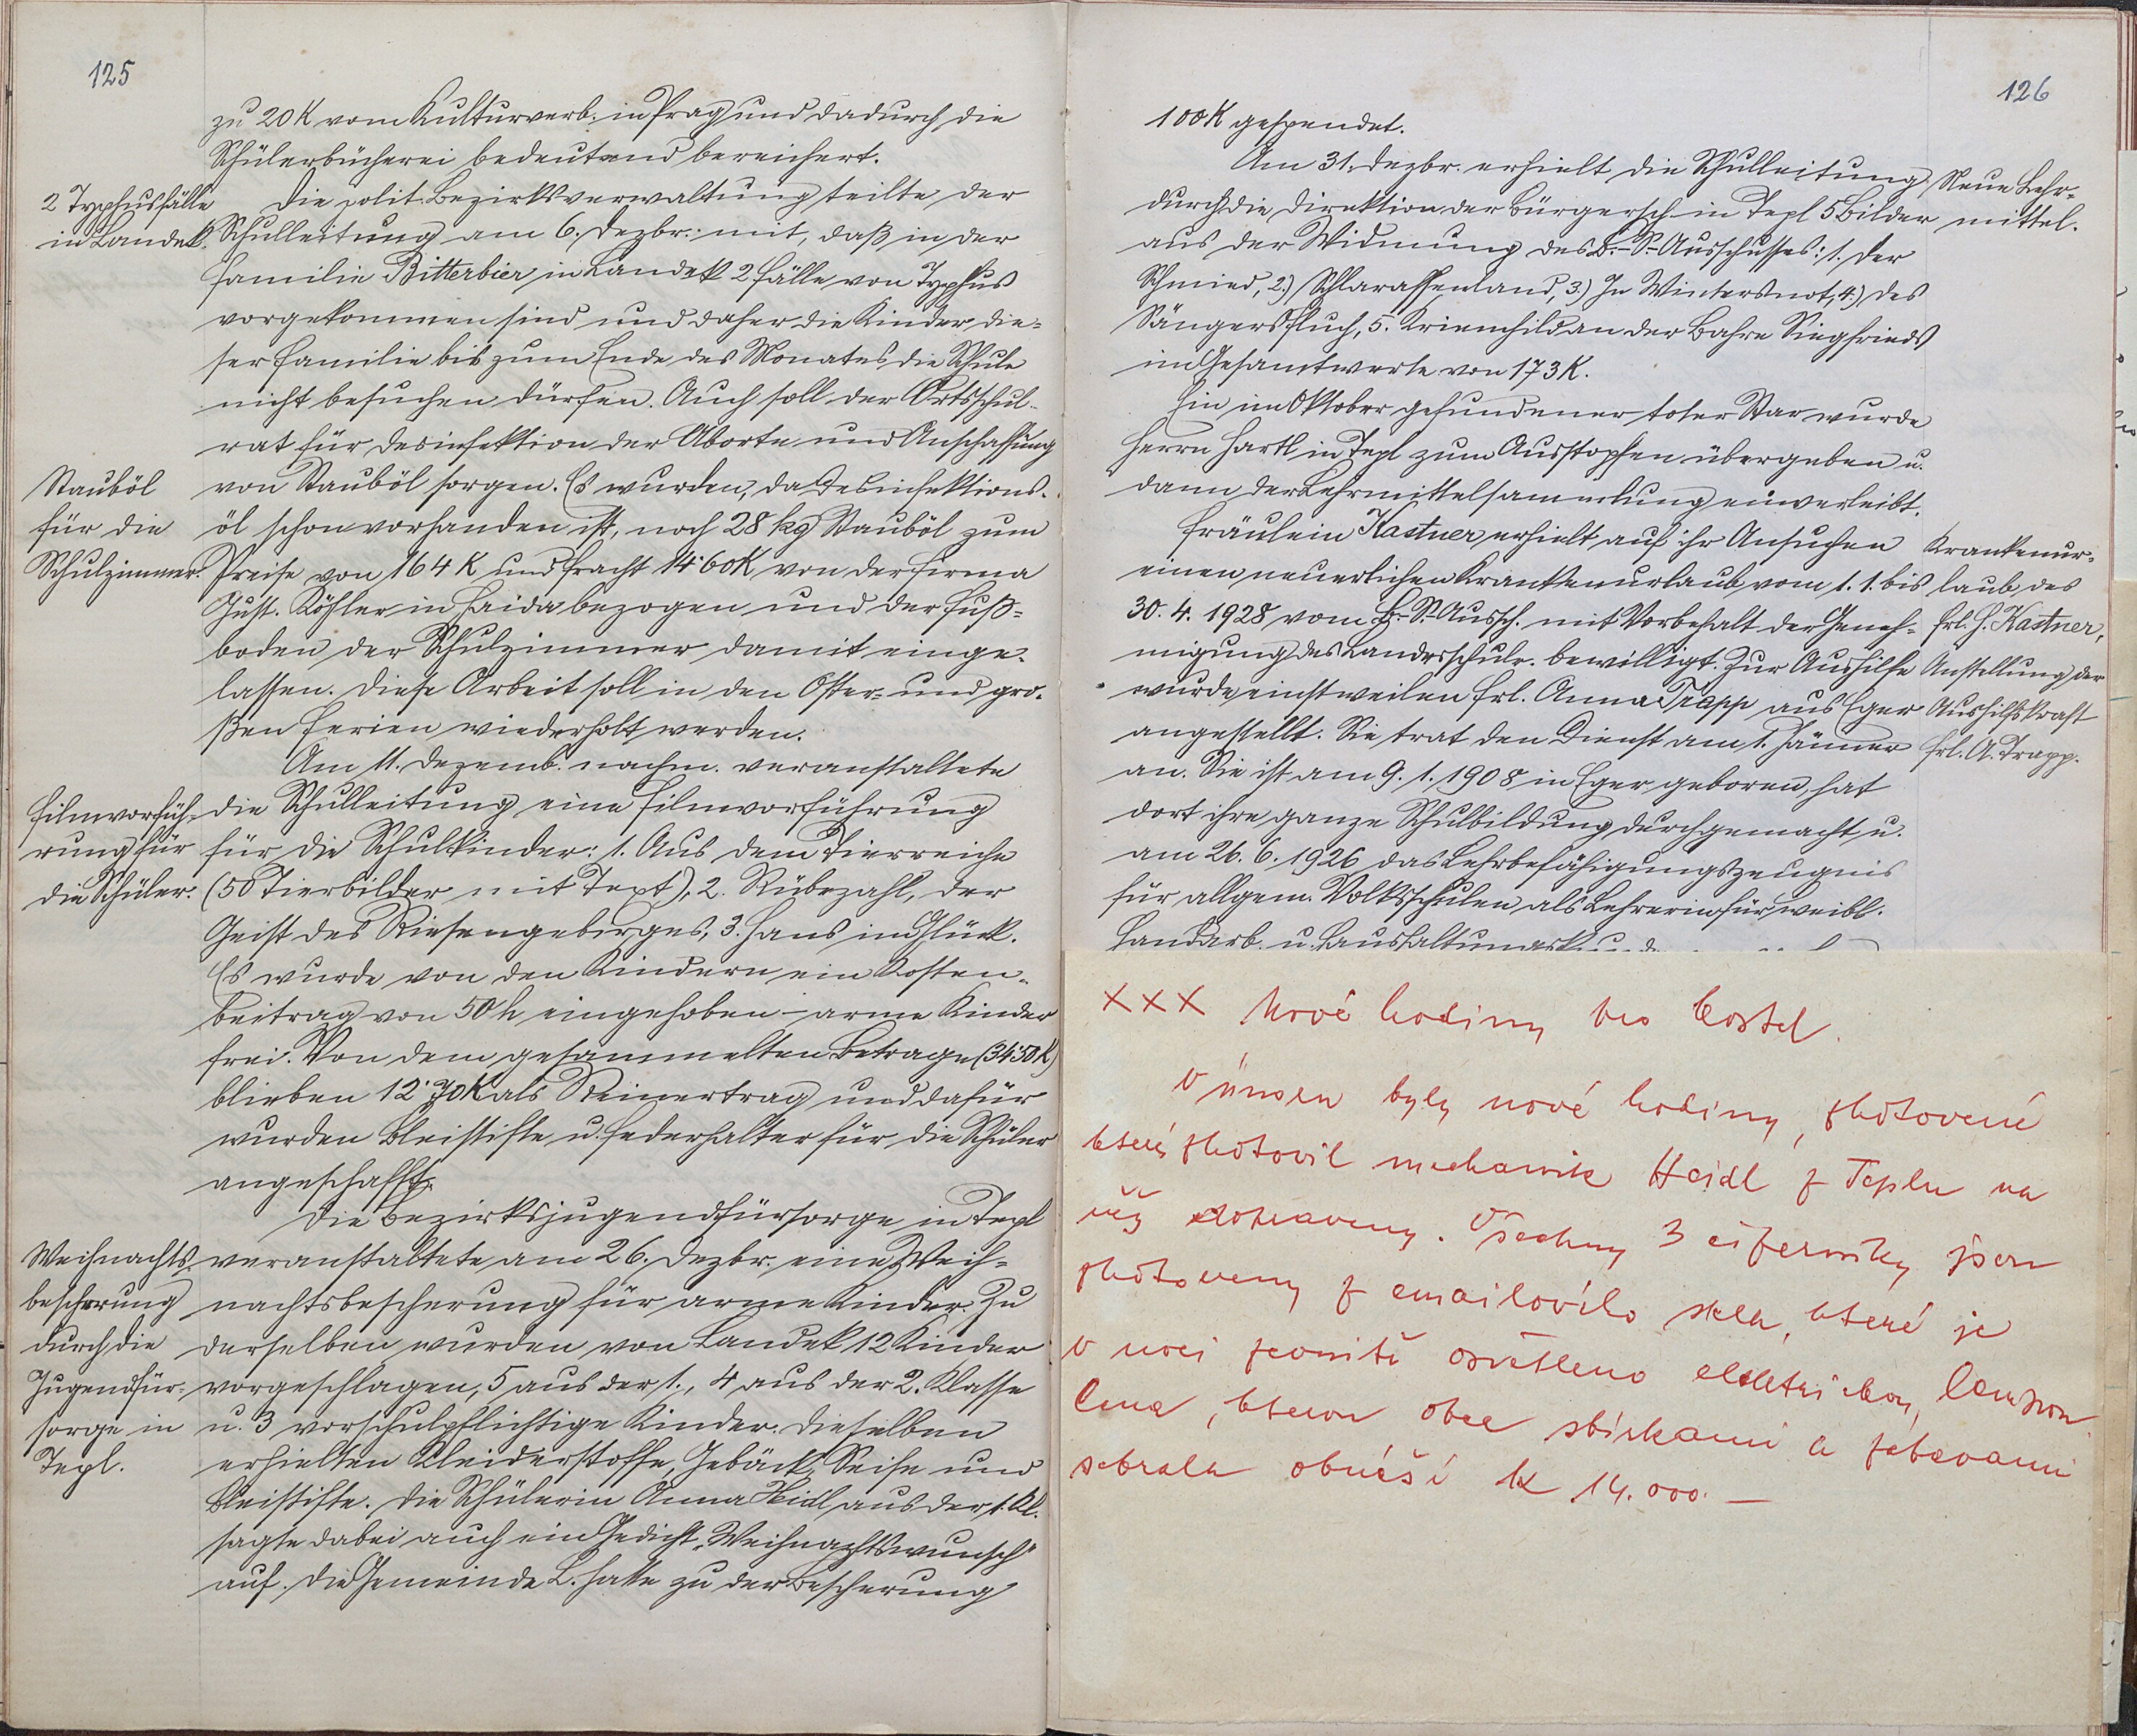 125
zu 20 K vom Kulturverb. in Prag und dadurch die
Schülerbücherei bedeutend bereichert.
2 Typhusfälle
in Landek.
Die polit. Bezirksverwaltung teilte der
Schulleitung am 6. Dezbr. mit, daß in der
Familie Bitterbier in Landek 2 Fälle von Typhus
vorgekommen sind und daher die Kinder die-
ser Familie bis zum Ende des Monates die Schule
nicht besuchen dürfen. Auch soll der Ortsschul-
rat für Desinfektion der Aborte und Anschaffung
Stauböl
für die
Schulzimmer.
von Stauböl sorgen. Es wurden, da Desinfektions-
öl schon vorhanden ist, noch 28 kg Stauböl zum
Preise von 164 K und Fracht 14·60 K von der Firma
Gust. Köhler in Haida bezogen und der Fuß-
boden der Schulzimmer damit einge-
lassen. Diese Arbeit soll in den Oster- und gro-
ßen Ferien wiederholt werden.
Am 11. Dezemb. nachm. veranstaltete
Filmvorfüh-
rung für
die Schüler.
die Schulleitung eine Filmvorführung
für die Schulkinder: 1. Aus dem Tierreiche
(50 Tierbilder mit Text), 2. Rübezahl, der
Geist des Riesengebirges, 3. Hans im Glück.
Es wurde von den Kindern ein Kosten-
beitrag von 50 h eingehoben – arme Kinder
frei. Von dem gesammelten Betrage (34·50 K)
blieben 12·70 K als Reinertrag und dafür
wurden Bleistifte u. Federhalter für die Schüler
angeschafft.
Die Bezirksjugendfürsorge in Tepl
Weihnachts-
bescherung
durch die
Jugendfür-
sorge in
Tepl.
veranstaltete am 26. Dezbr. eine Weih-
nachtsbescherung für arme Kinder. Zu
derselben wurden von Landek 12 Kinder
vorgeschlagen, 5 aus der 1., 4 aus der 2. Klasse
u. 3 vorschulpflichtige Kinder. Dieselben
erhielten Kleiderstoffe, Gebäck, Seife und
Bleistifte. Die Schülerin Anna Heidl aus der 1. Kl.
sagte dabei auch ein Gedicht „Weihnachtswunsch"
auf. Die Gemeinde L. hatte zu der Bescherung
126
100 K gespendet.
Am 31. Dezbr. erhielt die Schulleitung
durch die Direktion der Bürgersch. in Tepl 5 Bilder
aus der Widmung des B.-S.-Ausschusses: 1. Der
Schmied, 2.) Schlaraffenland, 3.) In Wintersnot, 4.) Des
Sängers Fluch, 5. Kriemhild an der Bahre Siegfrieds
im Gesamtwerte von 173 K.
Neue Lehr-
mittel.
Ein im Oktober gefundener toter Star wurde
Herrn Hartl in Tepl zum Ausstopfen übergeben u.
dann der Lehrmittelsammlung einverleibt.
Fräulein Kastner erhielt auf ihr Ansuchen
einen neuerlichen Krankenurlaub vom 1. 1. bis
30. 4. 1928 vom B.-S.-Aussch. mit Vorbehalt der Geneh-
migung des Landesschulr. bewilligt. Zur Aushilfe
wurde einstweilen Frl. Anna Trapp aus Eger
angestellt. Sie trat den Dienst am 1. Jänner
an. Sie ist am 9. 1. 1908 in Eger geboren, hat
dort ihre ganze Schulbildung durchgemacht u.
am 26. 6. 1926 das Lehrbefähigungszeugnis
für allgem. Volksschulen als Lehrerin für weibl.
Handarb. u. Haushaltungskunde
Krankenur-
laub des
Frl. H. Kastner,
Anstellung der
Aushilfskraft
Frl. A. Trapp.
XXX Nové hodiny pro kostel.
V únoru byly nové hodiny, zhotovené
které zhotovil mechanik Heidl z Teplu na
věž dopraveny. Všechny 3 ciferníky jsou
zhotoveny z emailového skla, které je
v noci zevnitř osvětleno elektrickou lampou
Cena, kterou obec sbírkami a zábavami
sebrala obnáší K 14.000.—